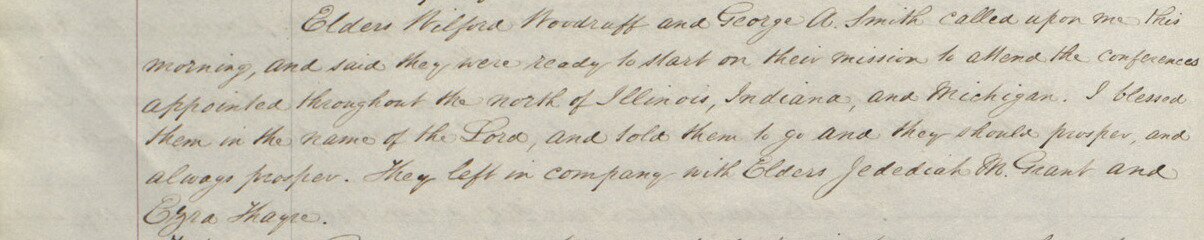 Elders Wilford Woodruff and George A. Smith called upon me this
morning, and said they were ready to start on their mission to attend the conferences
appointed throughout the north of Illinois, Indiana, and Michigan. I blessed
them in the name of the Lord, and told them to go and they should prosper, and
always prosper. They left in company with Elders Jedediah M. Grant and
Ezra Thayre.